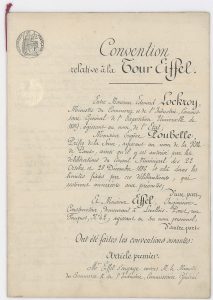 Convention
relative à la Tour Eiffel.
Entre Monsieur Edouard Lockroy,
Ministre du Commerce et de l'Industrie, Commis-
saire Général de l'Exposition Universelle de
1889, agissant au nom de l'Etat,
Monsieur Eugène Poubelle,
Préfet de la Seine, agissant au nom de la Ville
de Paris, ainsi qu'il y est autorisé par
délibérations du Conseil Municipal des 22
Octobre et 28 Décembre 1886 et ce dans les
limites fixées par ces délibérations, qui
demeurent annexées aux présentes,
D'une part,
Et Monsieur Eiffel, Ingénieur-
Constructeur, demeurant à Levallois-Perret, rue
Fouquet, N° 42, agissant en son nom personnel,
D'autre part,
Ont été faites les conventions suivantes:
Article premier.
Mr. Eiffel s'engage envers Mr. le Ministre
du Commerce & de l'Industrie, Commissaire Général